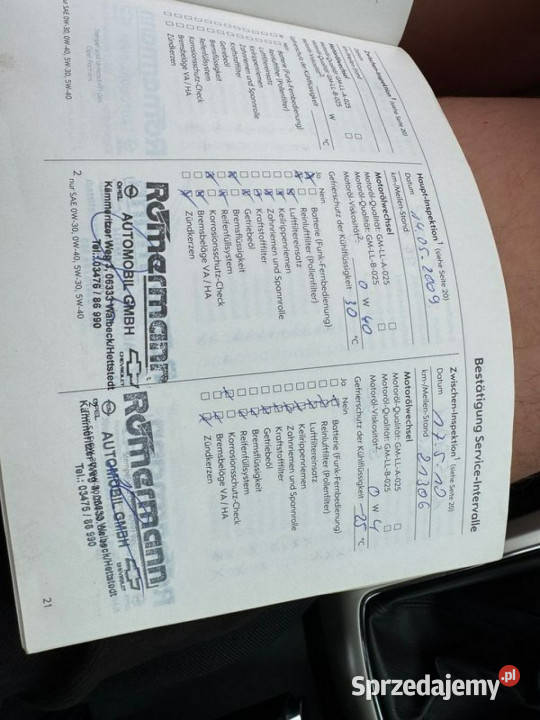 Bestätigung Service-Intervalle
Zwischen-Inspektion¹ (siehe Seite 20)
Datum 17.5.10
km-/Meilen-Stand 21306
Motorölwechsel
Motoröl-Qualität: GM-LL-A-025
Motoröl-Qualität: GM-LL-B-025
Motoröl-Viskosität²: 0 W 4
Gefrierschutz der Kühlflüssigkeit -25 °C
Ja Nein
Batterie (Funk-Fernbedienung)
Reinluftfilter (Pollenfilter)
Luftfiltereinsatz
Keilrippenriemen
Zahnriemen und Spannrolle
Kraftstoffilter
Getriebeöl
Bremsflüssigkeit
Reifenfüllsystem
Korrosionsschutz-Check
Bremsbeläge VA / HA
Zündkerzen
Römermann
OPEL AUTOMOBIL GMBH CHEVROLET
Kammeritzer Weg 1, 06333 Walbeck/Hettstedt
Tel.: 03476 / 86 990
21
Haupt-Inspektion¹ (siehe Seite 20)
Datum 14.05.2009
km-/Meilen-Stand
Motorölwechsel
Motoröl-Qualität: GM-LL-A-025
Motoröl-Qualität: GM-LL-B-025
Motoröl-Viskosität²: 0 W 40
Gefrierschutz der Kühlflüssigkeit 30 °C
Ja Nein
Batterie (Funk-Fernbedienung)
Reinluftfilter (Pollenfilter)
Luftfiltereinsatz
Keilrippenriemen
Zahnriemen und Spannrolle
Kraftstoffilter
Getriebeöl
Bremsflüssigkeit
Reifenfüllsystem
Korrosionsschutz-Check
Bremsbeläge VA / HA
Zündkerzen
Römermann
OPEL AUTOMOBIL GMBH CHEVROLET
Kammeritzer Weg 1, 06333 Walbeck/Hettstedt
Tel.: 03476 / 86 990
2 nur SAE 0W-30, 0W-40, 5W-30, 5W-40
Zwischen-Inspektion¹ (siehe Seite 20)
Motorölwechsel
Motoröl-Qualität: GM-LL-A-025
Motoröl-Qualität: GM-LL-B-025
W
°C
Batterie (Funk-Fernbedienung)
Reinluftfilter (Pollenfilter)
Luftfiltereinsatz
Keilrippenriemen
Zahnriemen und Spannrolle
Kraftstoffilter
Getriebeöl
Bremsflüssigkeit
Reifenfüllsystem
Korrosionsschutz-Check
Bremsbeläge VA / HA
Zündkerzen
nur SAE 0W-30, 0W-40, 5W-30, 5W-40
Sprzedajemy.pl